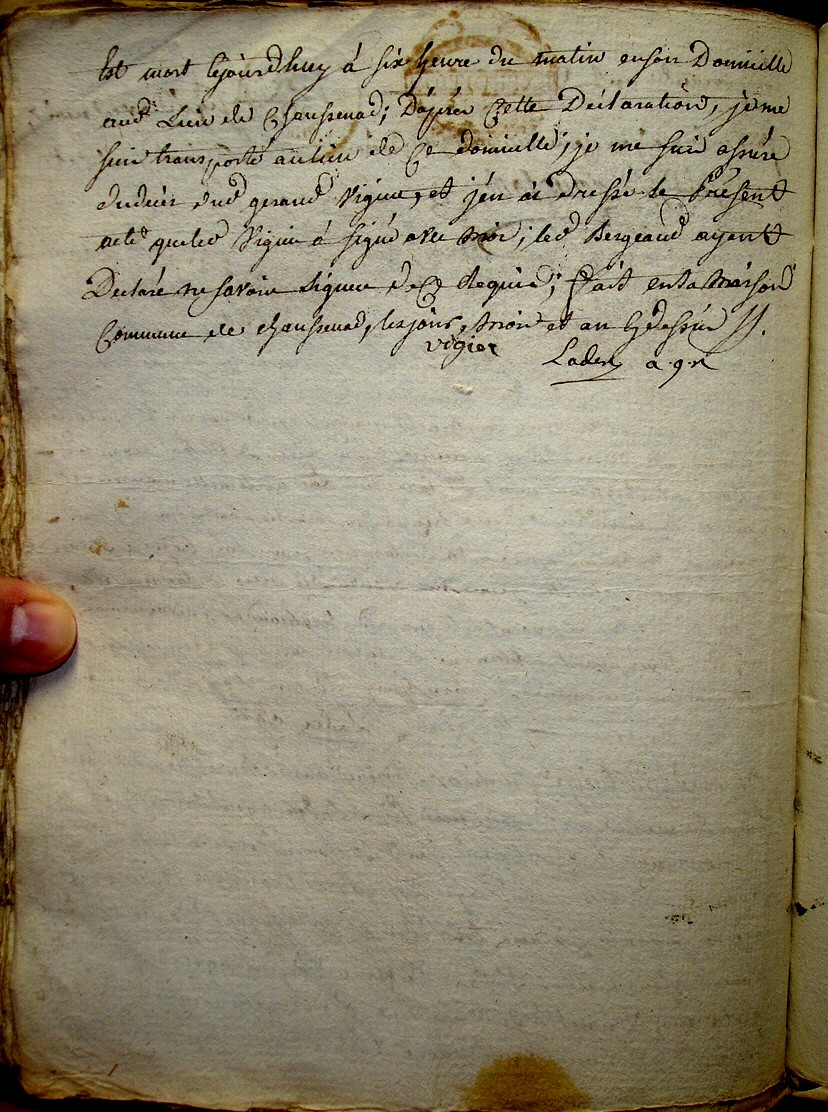 Est mort cejourdhuy à six heure du matin en son Domicille
aud. Lieu de Chaussenac; D'aprés Cette Déclaration, je me
suis transporté au lieu de Ce domicille; je me suis assuré
du décés dud. gerand Vigier, et j'én ai dressé le Présent
acte que led. Vigier à signé avec moi; led. Bergeaud ayant
Declaré ne savoir signer de Ce Requis; fait en la Maison
Commune de Chaussenac, les jour, mois et an Cydessus
vigier
a.g.n